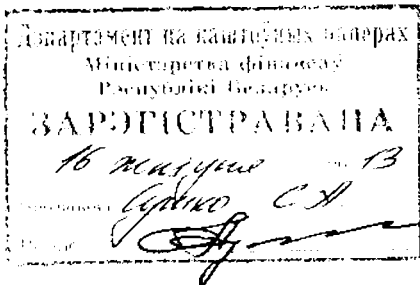 Дэпартамент па каштоўных паперах
Міністэрства фінансаў
Рэспублікі Беларусь
ЗАРЭГІСТРАВАНА
16 жніўня 13
С А